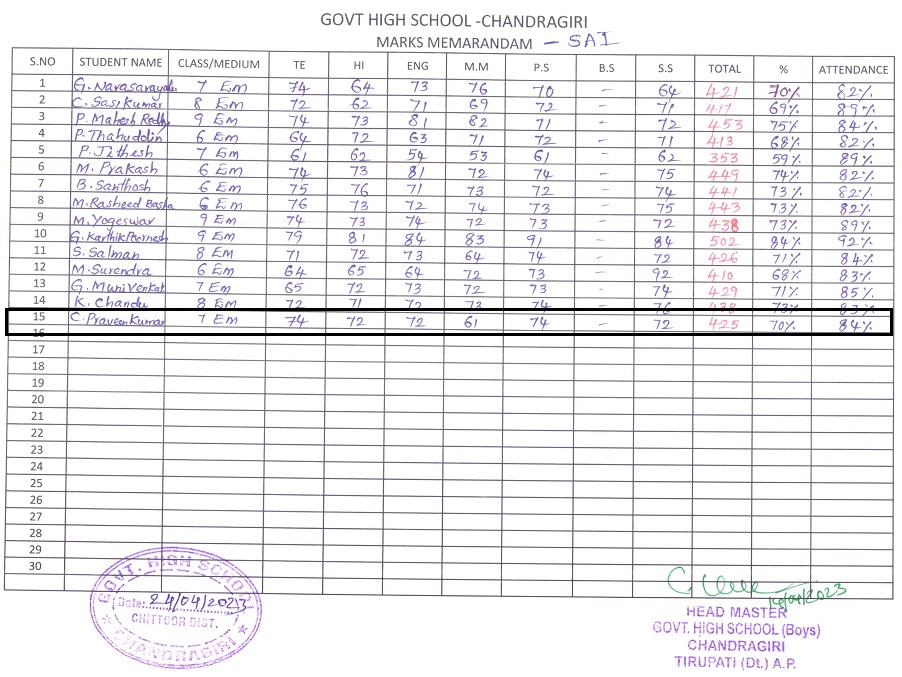 GOVT HIGH SCHOOL -CHANDRAGIRI
MARKS MEMARANDAM - SAI
S.NO STUDENT NAME CLASS/MEDIUM TE HI ENG M.M P.S B.S S.S TOTAL % ATTENDANCE
1 G. Narasarayalu 7 Em 74 64 73 76 70 - 64 421 70% 82%
2 C. Sasi Kumar 8 Em 72 62 71 69 72 - 71 417 69% 89%
3 P. Mahesh Reddy 9 Em 74 73 81 82 71 - 72 453 75% 84%
4 P. Thahuddin 6 Em 64 72 63 71 72 - 71 413 68% 82%
5 P. Jithesh 7 Em 61 62 54 53 61 - 62 353 59% 89%
6 M. Prakash 6 Em 74 73 81 72 74 - 75 449 74% 82%
7 B. Santhosh 6 Em 75 76 71 73 72 - 74 441 73% 82%
8 M. Rasheed Basha 6 Em 76 73 72 74 73 - 75 443 73% 82%
9 M. Yogeswar 9 Em 74 73 74 72 73 - 72 438 73% 89%
10 G. Karthik 9 Em 79 81 84 83 91 - 84 502 84% 92%
11 S. Salman 8 Em 71 72 73 64 74 - 72 426 71% 84%
12 M. Surendra 6 Em 64 65 64 72 73 - 92 410 68% 83%
13 G. Muni Venkat 7 Em 65 72 73 72 73 - 74 429 71% 85%
14 K. Chandu 8 Em 72 71 72 73 74 - 76 438 73% 83%
15 C. Praveen Kumar 7 Em 74 72 72 61 74 - 72 425 70% 84%
16
17
18
19
20
21
22
23
24
25
26
27
28
29
30
GOVT. HIGH SCHOOL
Date: 24/04/2023
CHITTOOR DIST.
CHANDRAGIRI
HEAD MASTER
GOVT. HIGH SCHOOL (Boys)
CHANDRAGIRI
TIRUPATI (Dt.) A.P.